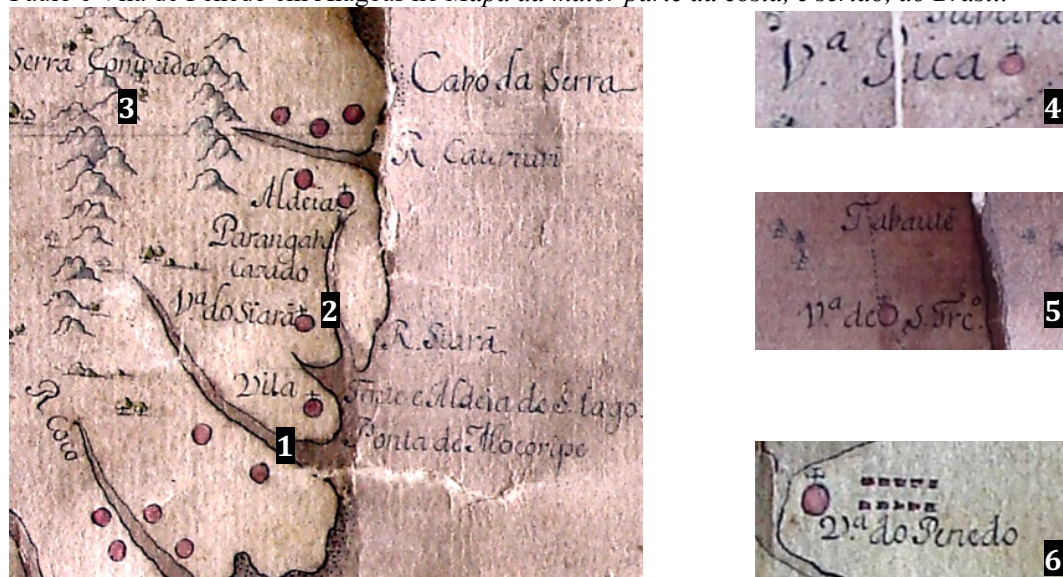 Paulo e Vila do Penedo em Alagoas no Mapa da maior parte da costa, e sertão, do Brasil.
Serra Compeida
3
Cabo da Serra
R. Cauruuri
Aldeia
Parangaba
Caxado
V.ª do Siarâ
2
R. Siarâ
Vila
Forte e Aldeia de S. Iago.
Ponta de Mocoripe
1
R. Coco
V.ª Rica
4
Tabauté
V.ª de S. Frc.º
5
V.ª do Penedo
6